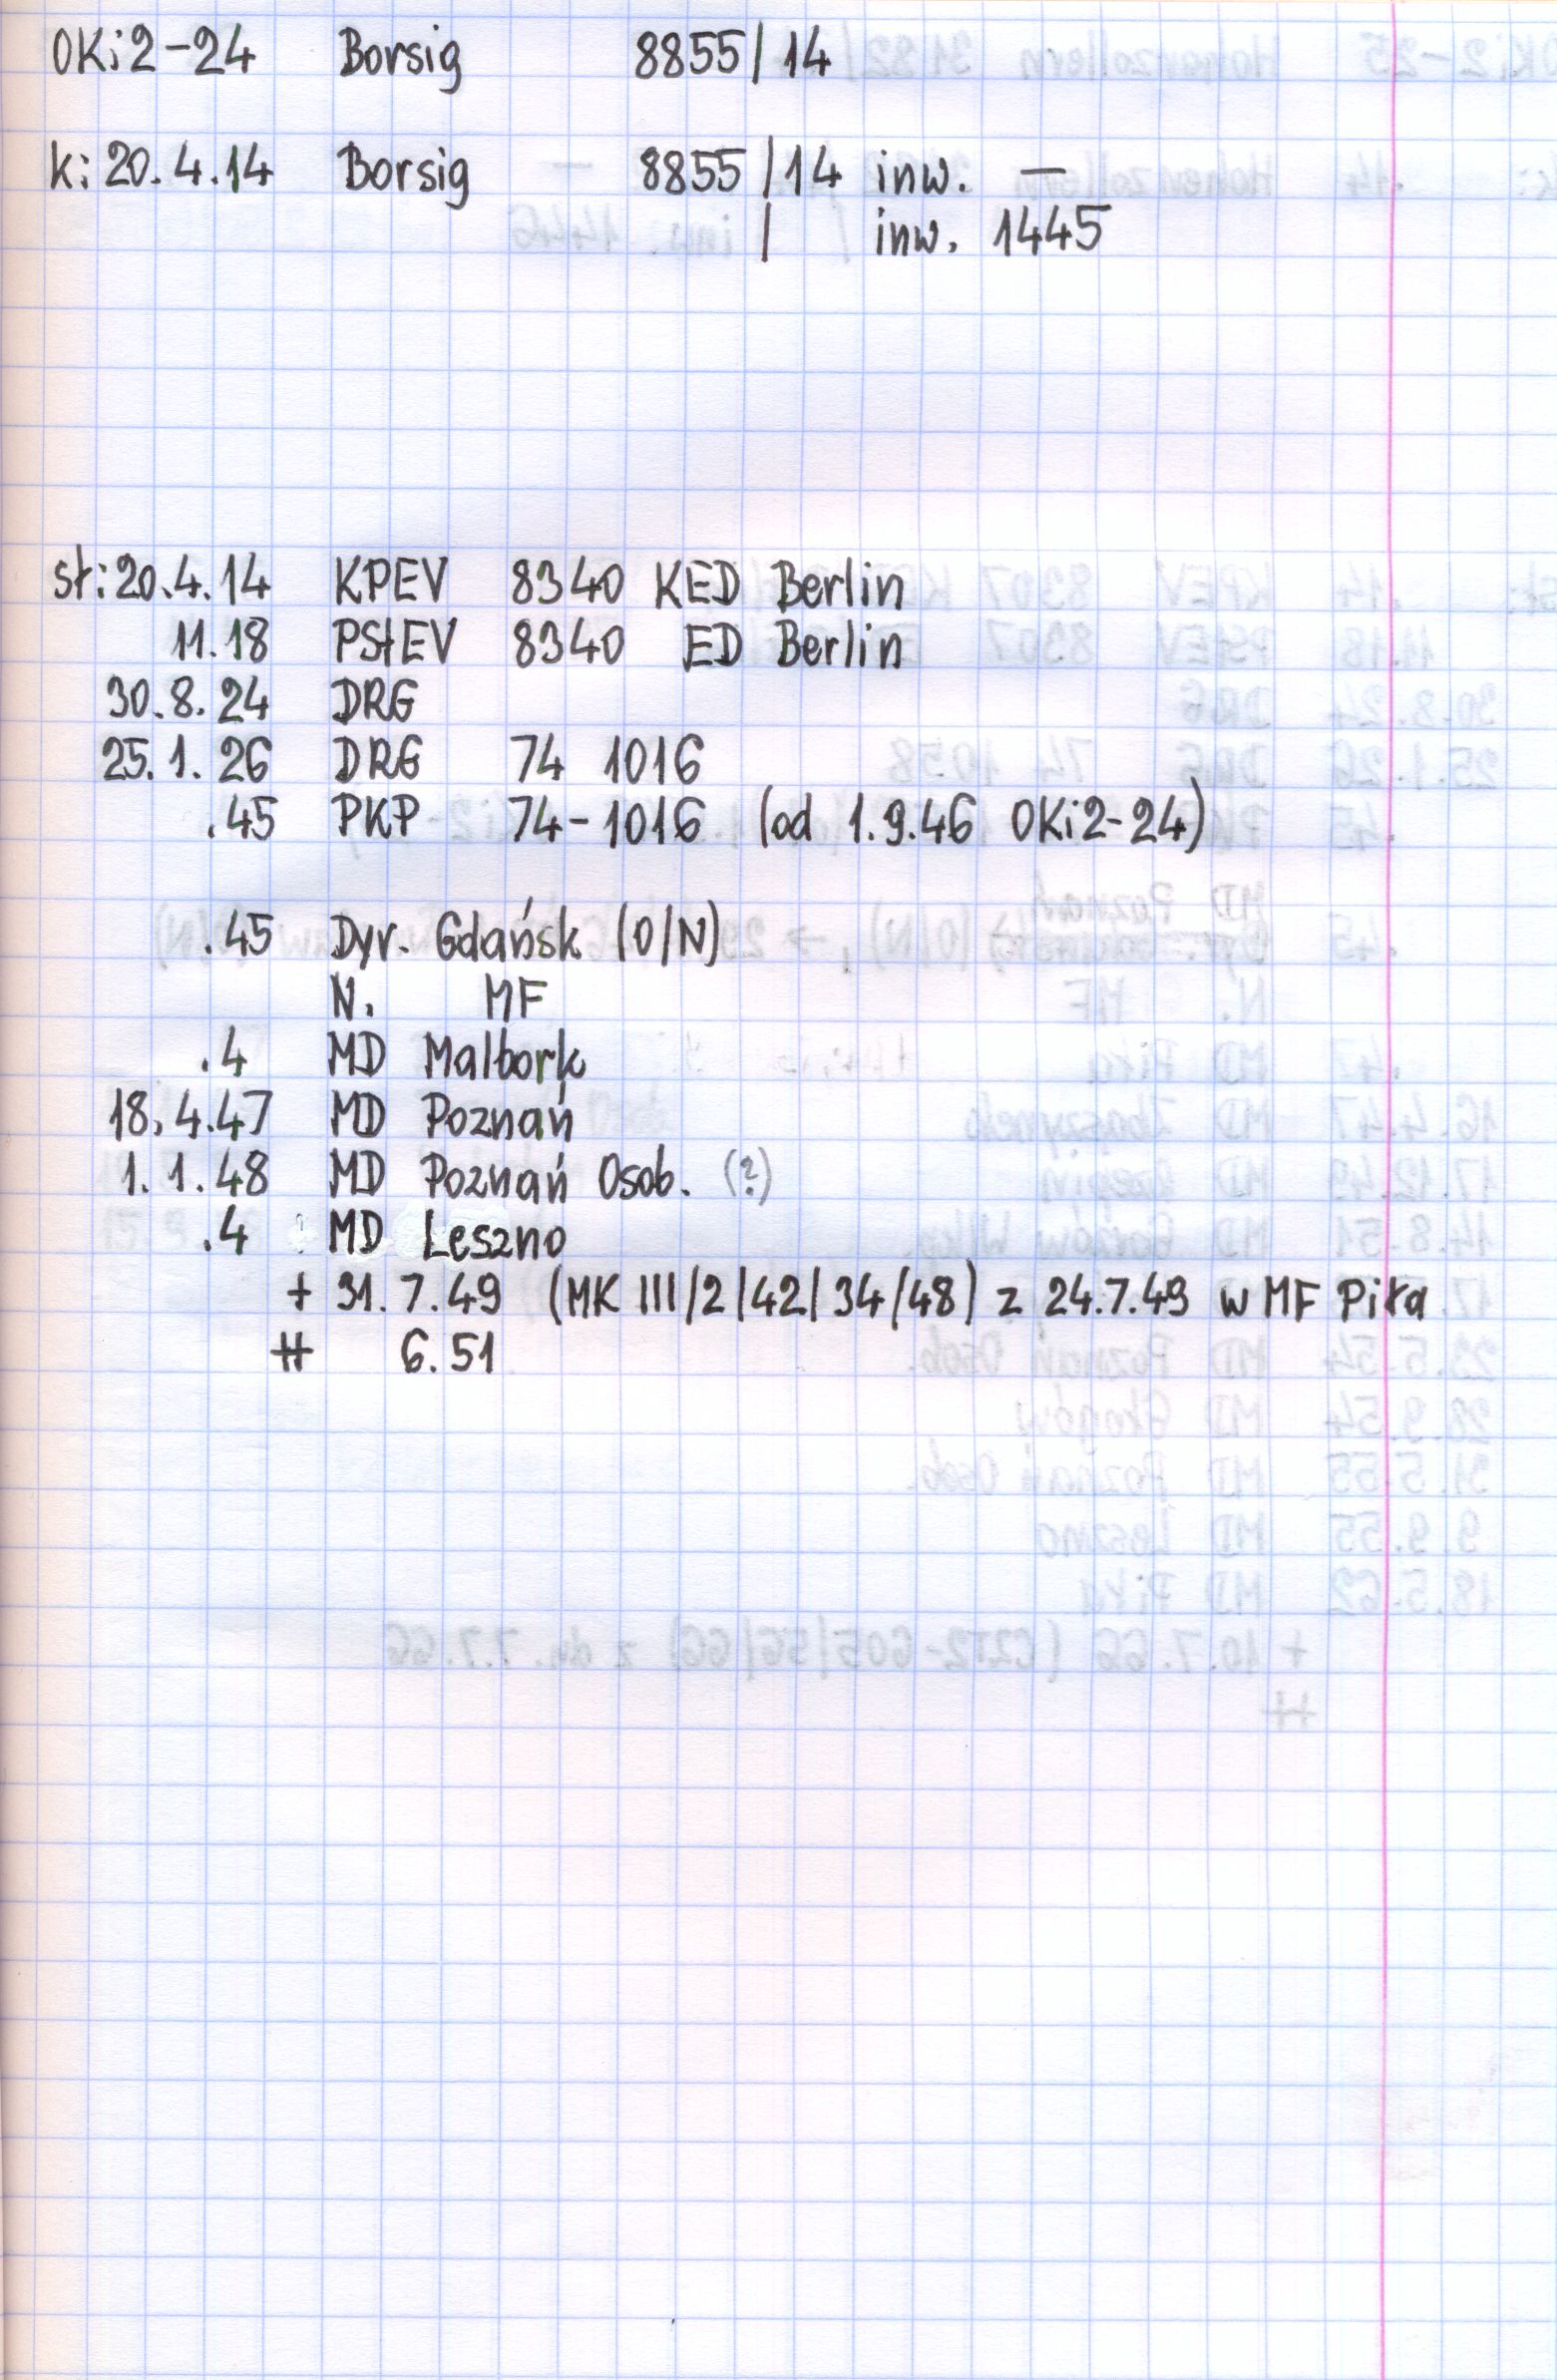 OKi2-24 Borsig 8855/14
k: 20.4.14 Borsig 8855/14 inw. —
/ inw. 1445
st: 20.4.14 KPEV 8340 KED Berlin
11.18 PStEV 8340 ED Berlin
30.8.24 DRG
25.1.26 DRG 74 1016
.45 PKP 74-1016 (od 1.9.46 OKi2-24)
.45 Dyr. Gdańsk (O/N)
N. MF
.4 MD Malbork
18.4.47 MD Poznań
1.1.48 MD Poznań Osob. (?)
.4 MD Leszno
+ 31.7.49 (MK III/2/42/34/48) z 24.7.49 w MF Piła
# 6.51